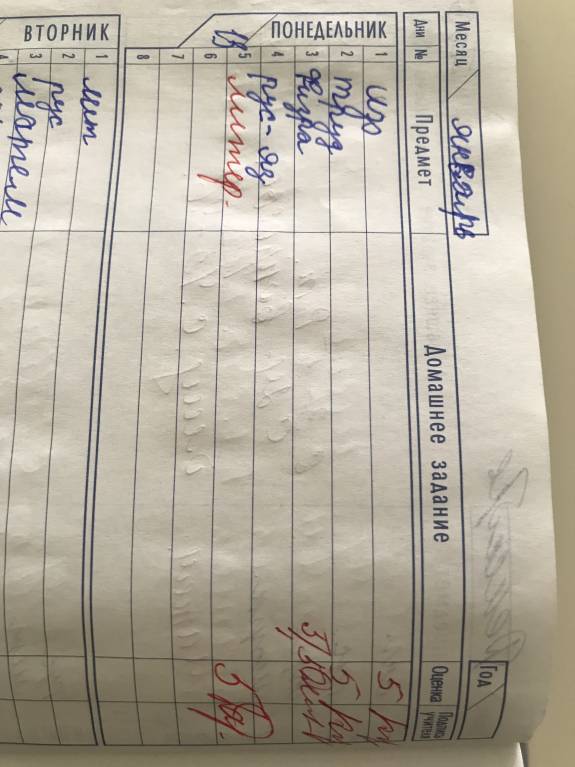 Месяц январь Год
Дни № Предмет Домашнее задание Оценка Подпись учителя
ПОНЕДЕЛЬНИК 19
1 ИЗО 5
2 труд 5
3 физра 5/
4 рус-яз
5 литер. 5
6
7
8
ВТОРНИК
1 лит
2 рус
3 матем
4